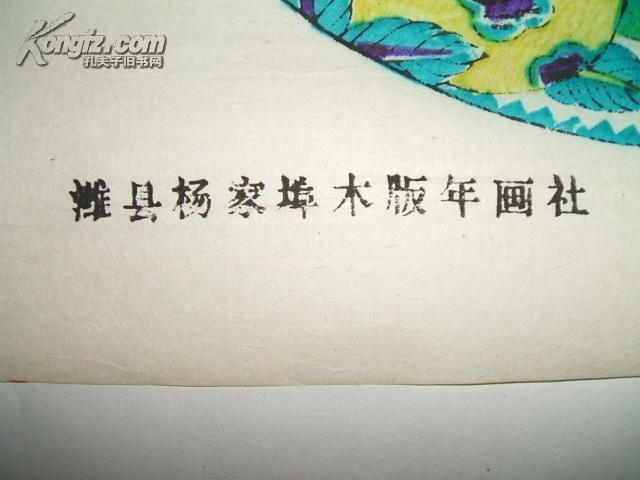 Kongfz.com
孔夫子旧书网
潍县杨家埠木版年画社